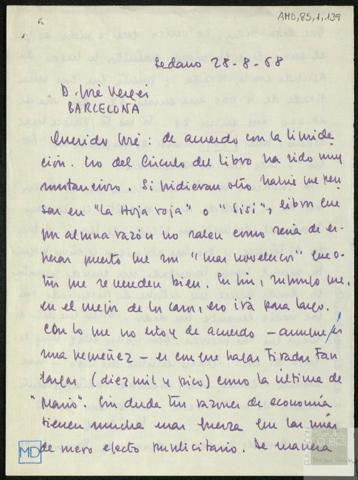 AMD,85,1,139
Sedano 28-8-68
D. José Vergés
BARCELONA
Querido José: de acuerdo con la liquidación. Lo del Círculo del libro ha sido muy
sustancioso. Si pidieran otro habría que pensar en "La Hoja roja" o "Sisí", libros que
por alguna razón no salen como sería de esperar puesto que son "más novelescos" que otros que se venden bien. En fin, supongo que,
en el mejor de los casos, eso irá para largo.
Con lo que no estoy de acuerdo – aunque es
una pequeñez – es en que hagas tiradas tan
largas (diez mil y pico) como la última de
"Mario". Sin duda tus razones de economía
tienen mucha más fuerza que las mías
de mero efecto publicitario. De manera
MD